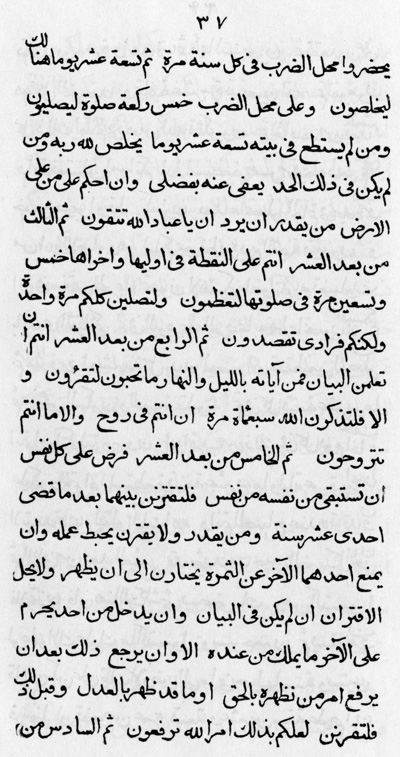 ٣٧
يحضروا محل الضرب في كل سنة مرة ثم تسعة عشر يوما هنالك
ليخلصون وعلى محل الضرب خمس ركعة صلوة ليصليون
ومن لم يستطع في بيته تسعة عشر يوما يخلص لله ربه ومن
لم يكن في ذلك الحد يعفى عنه بفضلى وان احكم على من على
الارض من يقدر ان يرد ان يا عباد الله تتقون ثم الثالث
من بعد العشر انتم على النقطة في اوليها واخراها خمس
وتسعين مرة في صلوتها لتعظمون ولتصلين كلكم مرة واحدة
ولكنكم فرادى تقصدون ثم الرابع من بعد العشر انتم ان
تعلمن البيان فمن آياته بالليل والنهار ما تحبون لتقرئون و
الا فلتذكرون الله سبعمأة مرة ان انتم في روح والا ما انتم
تتروحون ثم الخامس من بعد العشر فرض على كل نفس
أن تستبقي من نفسه من نفس فلتقرنن بينهما بعد ما قضى
احدى عشر سنة ومن يقدر ولا يقرن يحبط عمله وان
يمنع احدهما الآخر عن الثمرة يختارن الى ان يظهر ولا يحل
الاقتران ان لم يكن في البيان وان يدخل من احد يحرم
على الآخر ما يملك من عنده الا وان يرجع ذلك بعد ان
يرفع امر من نظهره بالحق او ما قد ظهر بالعدل وقبل ذلك
فلتقربن لعلكم بذلك امر الله ترفعون ثم السادس من